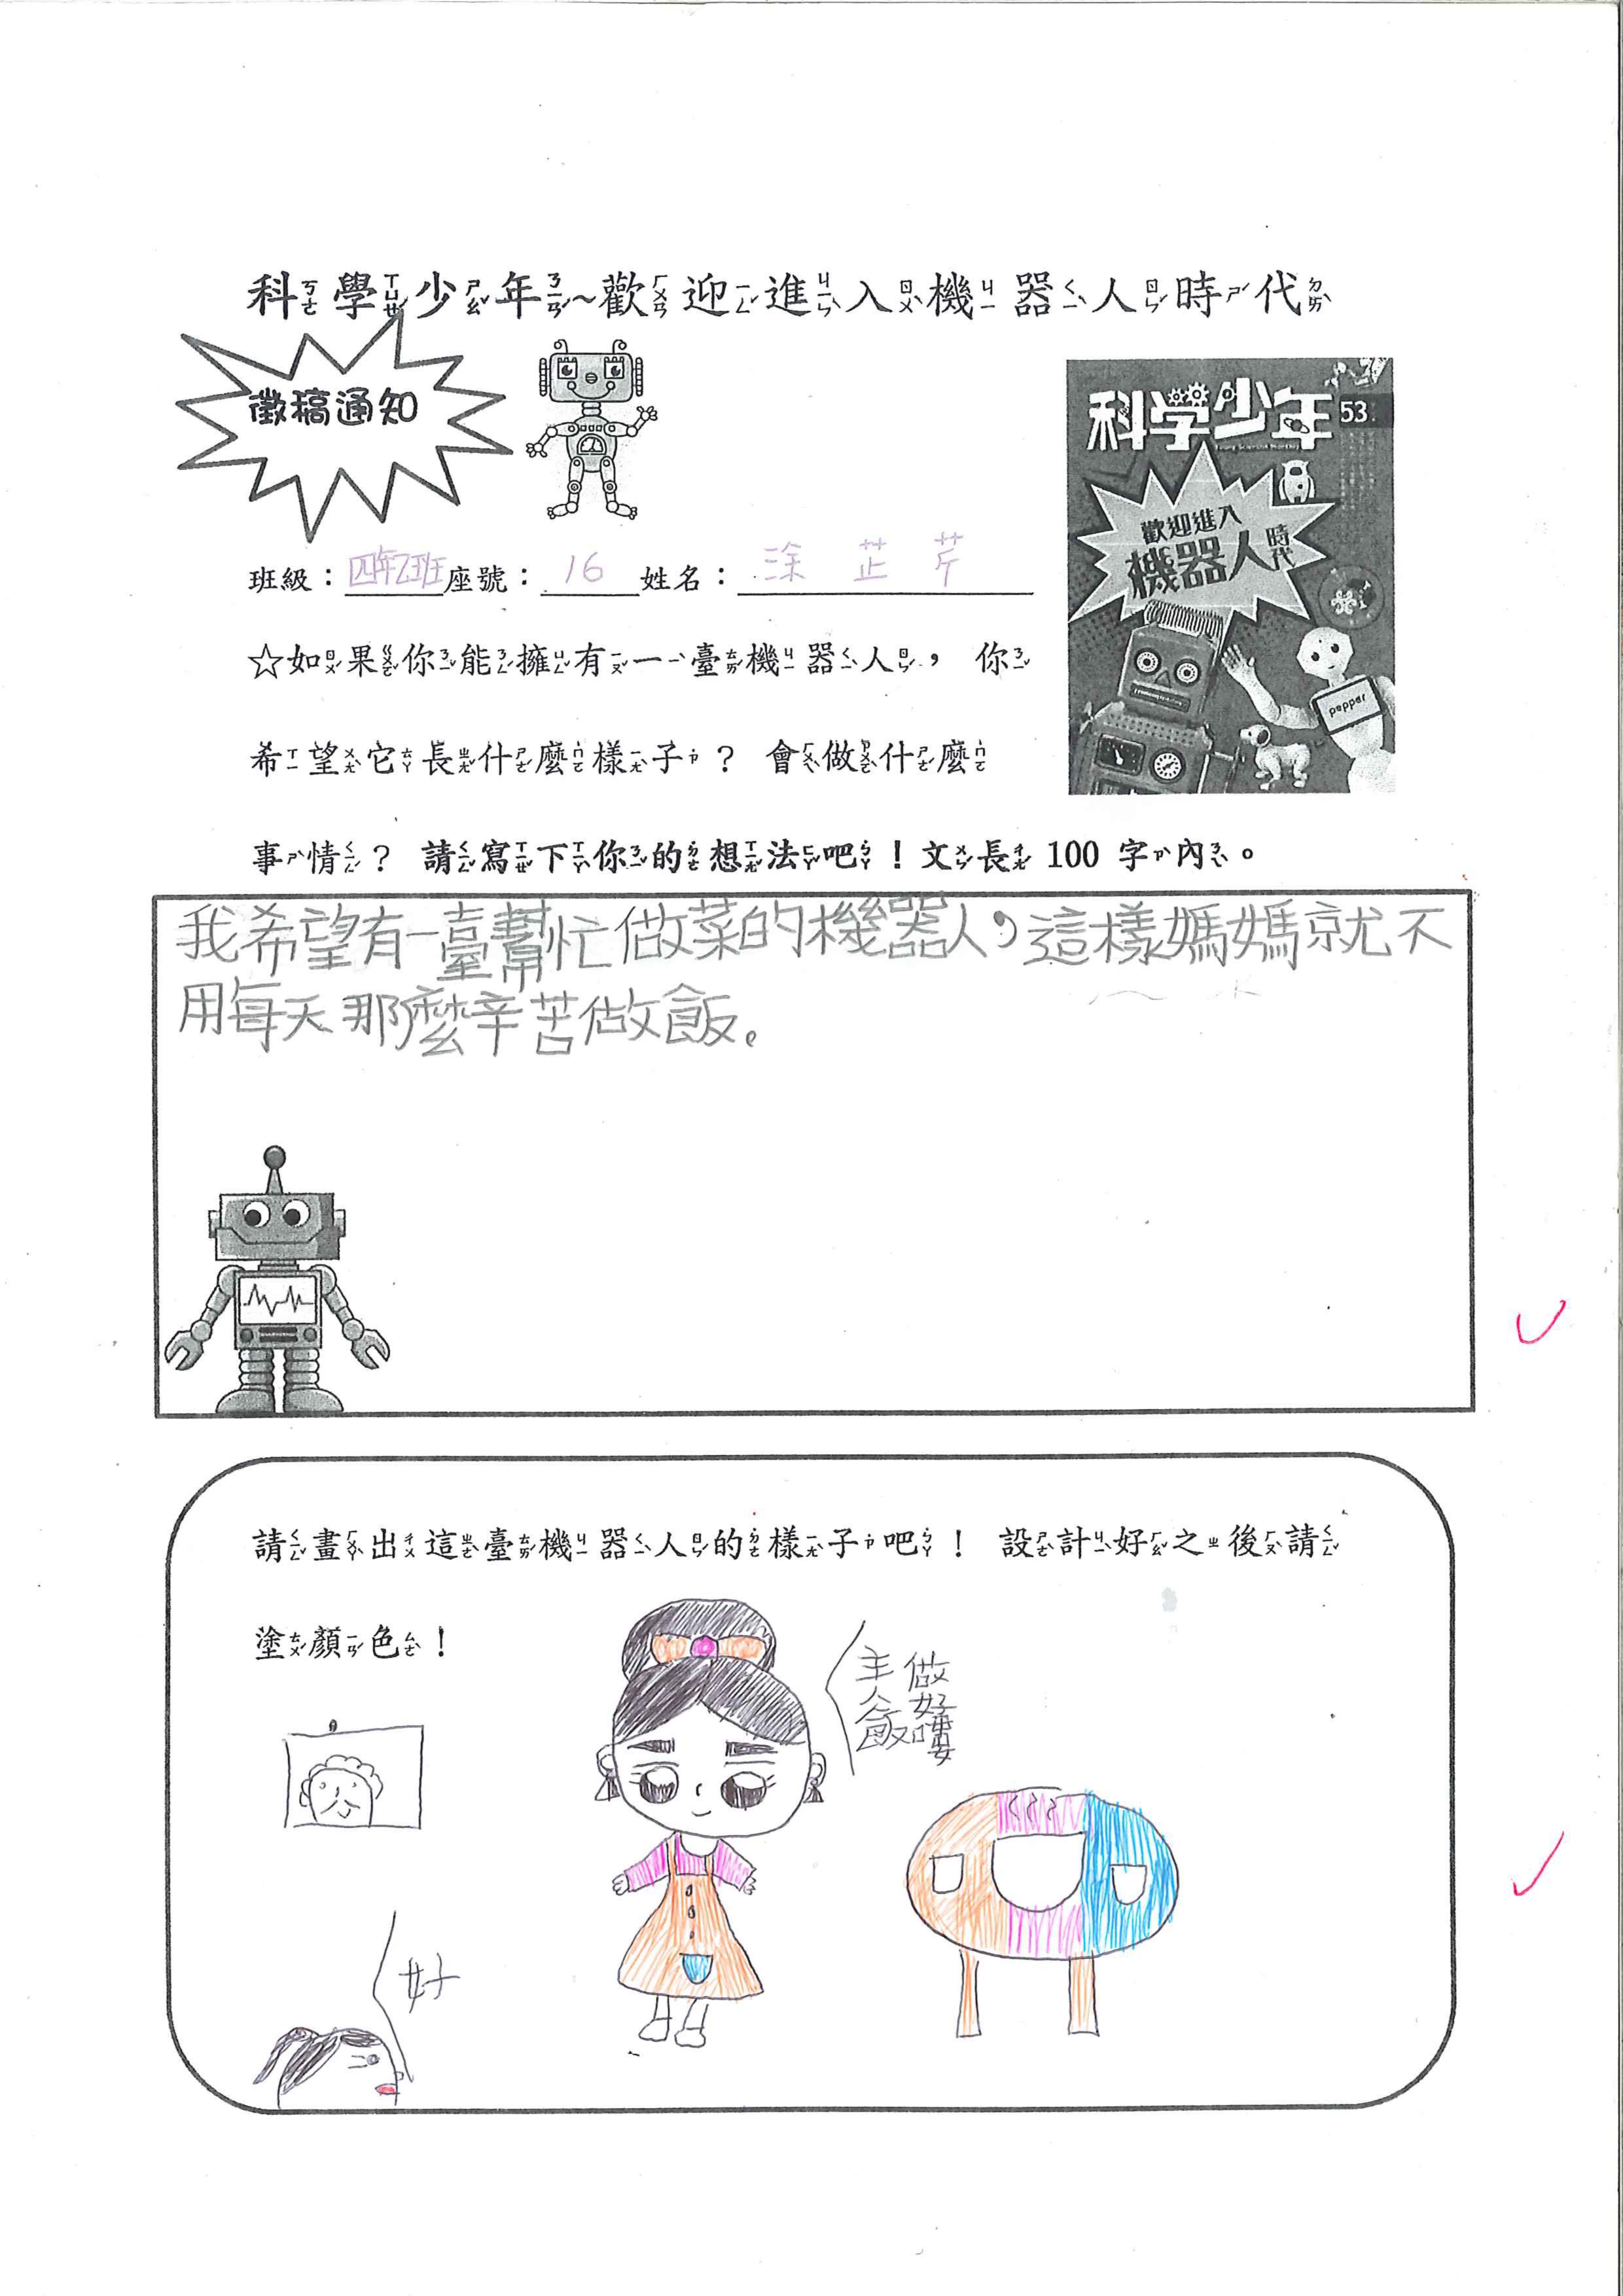 科學少年~歡迎進入機器人時代
徵稿通知
科学少年 53
歡迎進入
機器人時代
pepper
班級：四年乙班座號：16姓名：涂芷芹
☆如果你能擁有一臺機器人，你
希望它長什麼樣子？會做什麼
事情？請寫下你的想法吧！文長 100 字內。
我希望有一臺幫忙做菜的機器人，這樣媽媽就不
用每天那麼辛苦做飯。
請畫出這臺機器人的樣子吧！設計好之後請
塗顏色！
主人飯
做好嘍
好